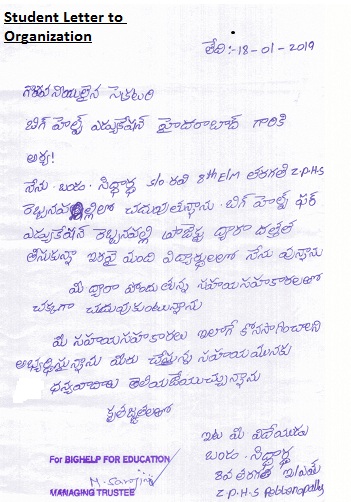 Student Letter to
Organization
తేది:-18-01-2019
గౌరవనీయులైన సెక్రటరి
బిగ్ హెల్ప్ ఎడ్యుకేషన్ హైదరాబాద్ గారికి
ఆర్య!
నేను. బండం. సిద్ధార్థ s/o రవి 8th E/M తరగతి Z.P.H.S
రెబ్బనపల్లిలో చదువుతున్నాను. బిగ్ హెల్ప్ ఫర్
ఎడ్యుకేషన్ రెబ్బనపల్లి ప్రాజెక్టు ద్వారా దత్తత
తీసుకున్నా ఇరవై మంది విద్యార్థులలో నేను వున్నాను
మీ ద్వారా పొందుతున్న సహాయసహకారాలతో
చక్కగా చదువుకుంటున్నాను
మీ సహాయసహకారాలు ఇలాగే కొనసాగించాలని
అభ్యర్థిస్తున్నాను మీరు చేస్తున్న సహాయమునకు
ధన్యవాదాలు తెలియజేయుచ్చున్నాను
కృతజ్ఞతలతో
ఇట్లు మీ విధేయుడు
బండం. సిద్ధార్థ
8వ తరగతి ఇ/మీ
Z.P.H.S Rebbanapally
For BIGHELP FOR EDUCATION
MANAGING TRUSTEE